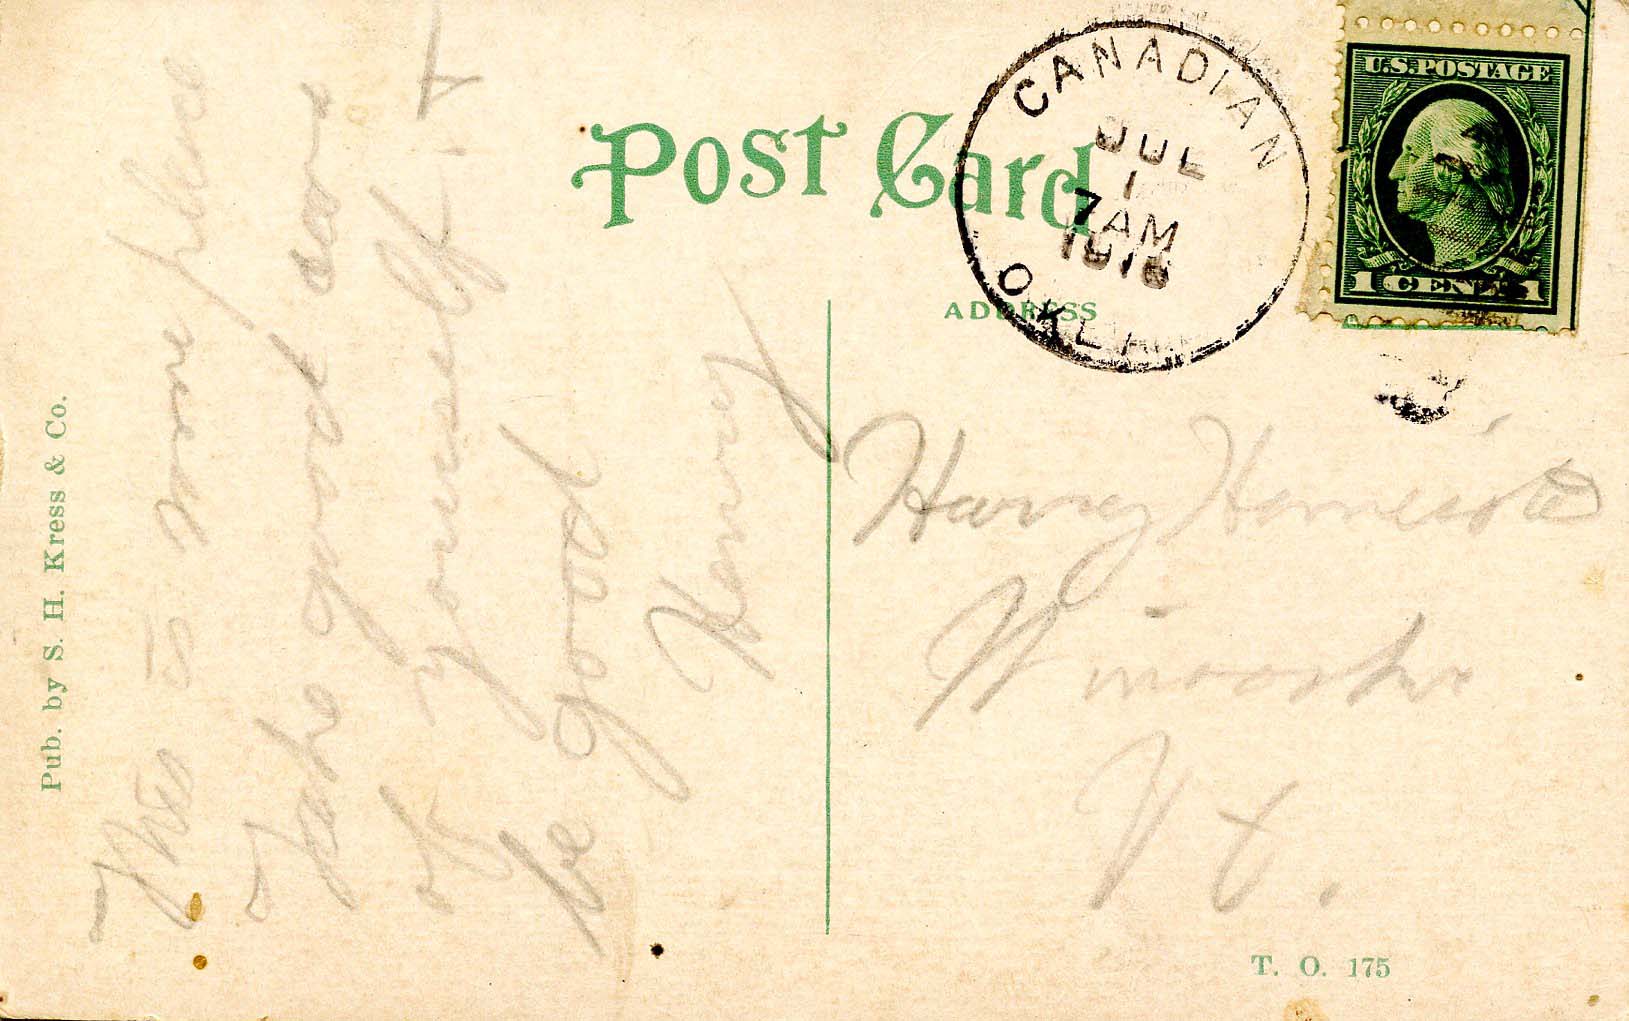 Post Card
CANADIAN
JUL
1
7 AM
1916
OKLA.
U.S. POSTAGE
1 CENT 1
ADDRESS
Harvey
Winooski
Vt.
T. O. 175
Pub. by S. H. Kress & Co.
This is some place
Take good care
of yourself. &
be good
Harvey